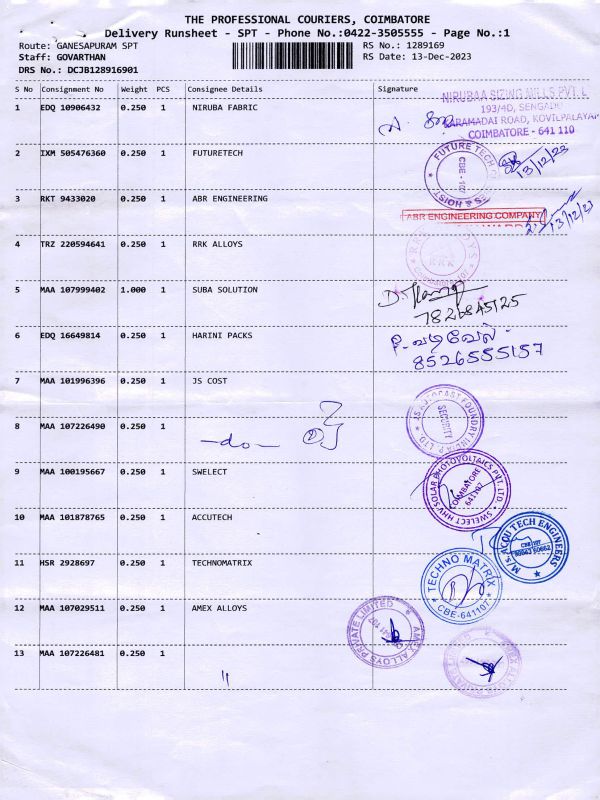 THE PROFESSIONAL COURIERS, COIMBATORE
Delivery Runsheet - SPT - Phone No.:0422-3505555 - Page No.:1
Route: GANESAPURAM SPT
RS No.: 1289169
Staff: GOVARTHAN
RS Date: 13-Dec-2023
DRS No.: DCJB128916901
S No Consignment No Weight PCS Consignee Details Signature
1 EDQ 10906432 0.250 1 NIRUBA FABRIC
NIRUBAA SIZING MILLS PVT. L
193/4D, SENGADU
KARAMADAI ROAD, KOVILPALAYA
COIMBATORE - 641 110
2 IXM 505476360 0.250 1 FUTURETECH
FUTURE TECH
CBE - 107
S & HOIST
13/12/23
3 RKT 9433020 0.250 1 ABR ENGINEERING
ABR ENGINEERING COMPANY
13/12/23
4 TRZ 220594641 0.250 1 RRK ALLOYS
5 MAA 107999402 1.000 1 SUBA SOLUTION
7826845125
6 EDQ 16649814 0.250 1 HARINI PACKS
P. வடிவேல்
8526555157
7 MAA 101996396 0.250 1 JS COST
JS AUTOCAST FOUNDRY INDIA P. LTD
SECURITY
8 MAA 107226490 0.250 1
-do-
9 MAA 100195667 0.250 1 SWELECT
SWELECT HHV SOLAR PHOTOVOLTAICS PVT. LTD.
COIMBATORE
641107
10 MAA 101878765 0.250 1 ACCUTECH
M/s ACCU TECH ENGINEERS
11 HSR 2928697 0.250 1 TECHNOMATRIX
TECHNO MATRIX
CBE-641107
12 MAA 107029511 0.250 1 AMEX ALLOYS
AMEX ALLOYS PRIVATE LIMITED
13 MAA 107226481 0.250 1
〃